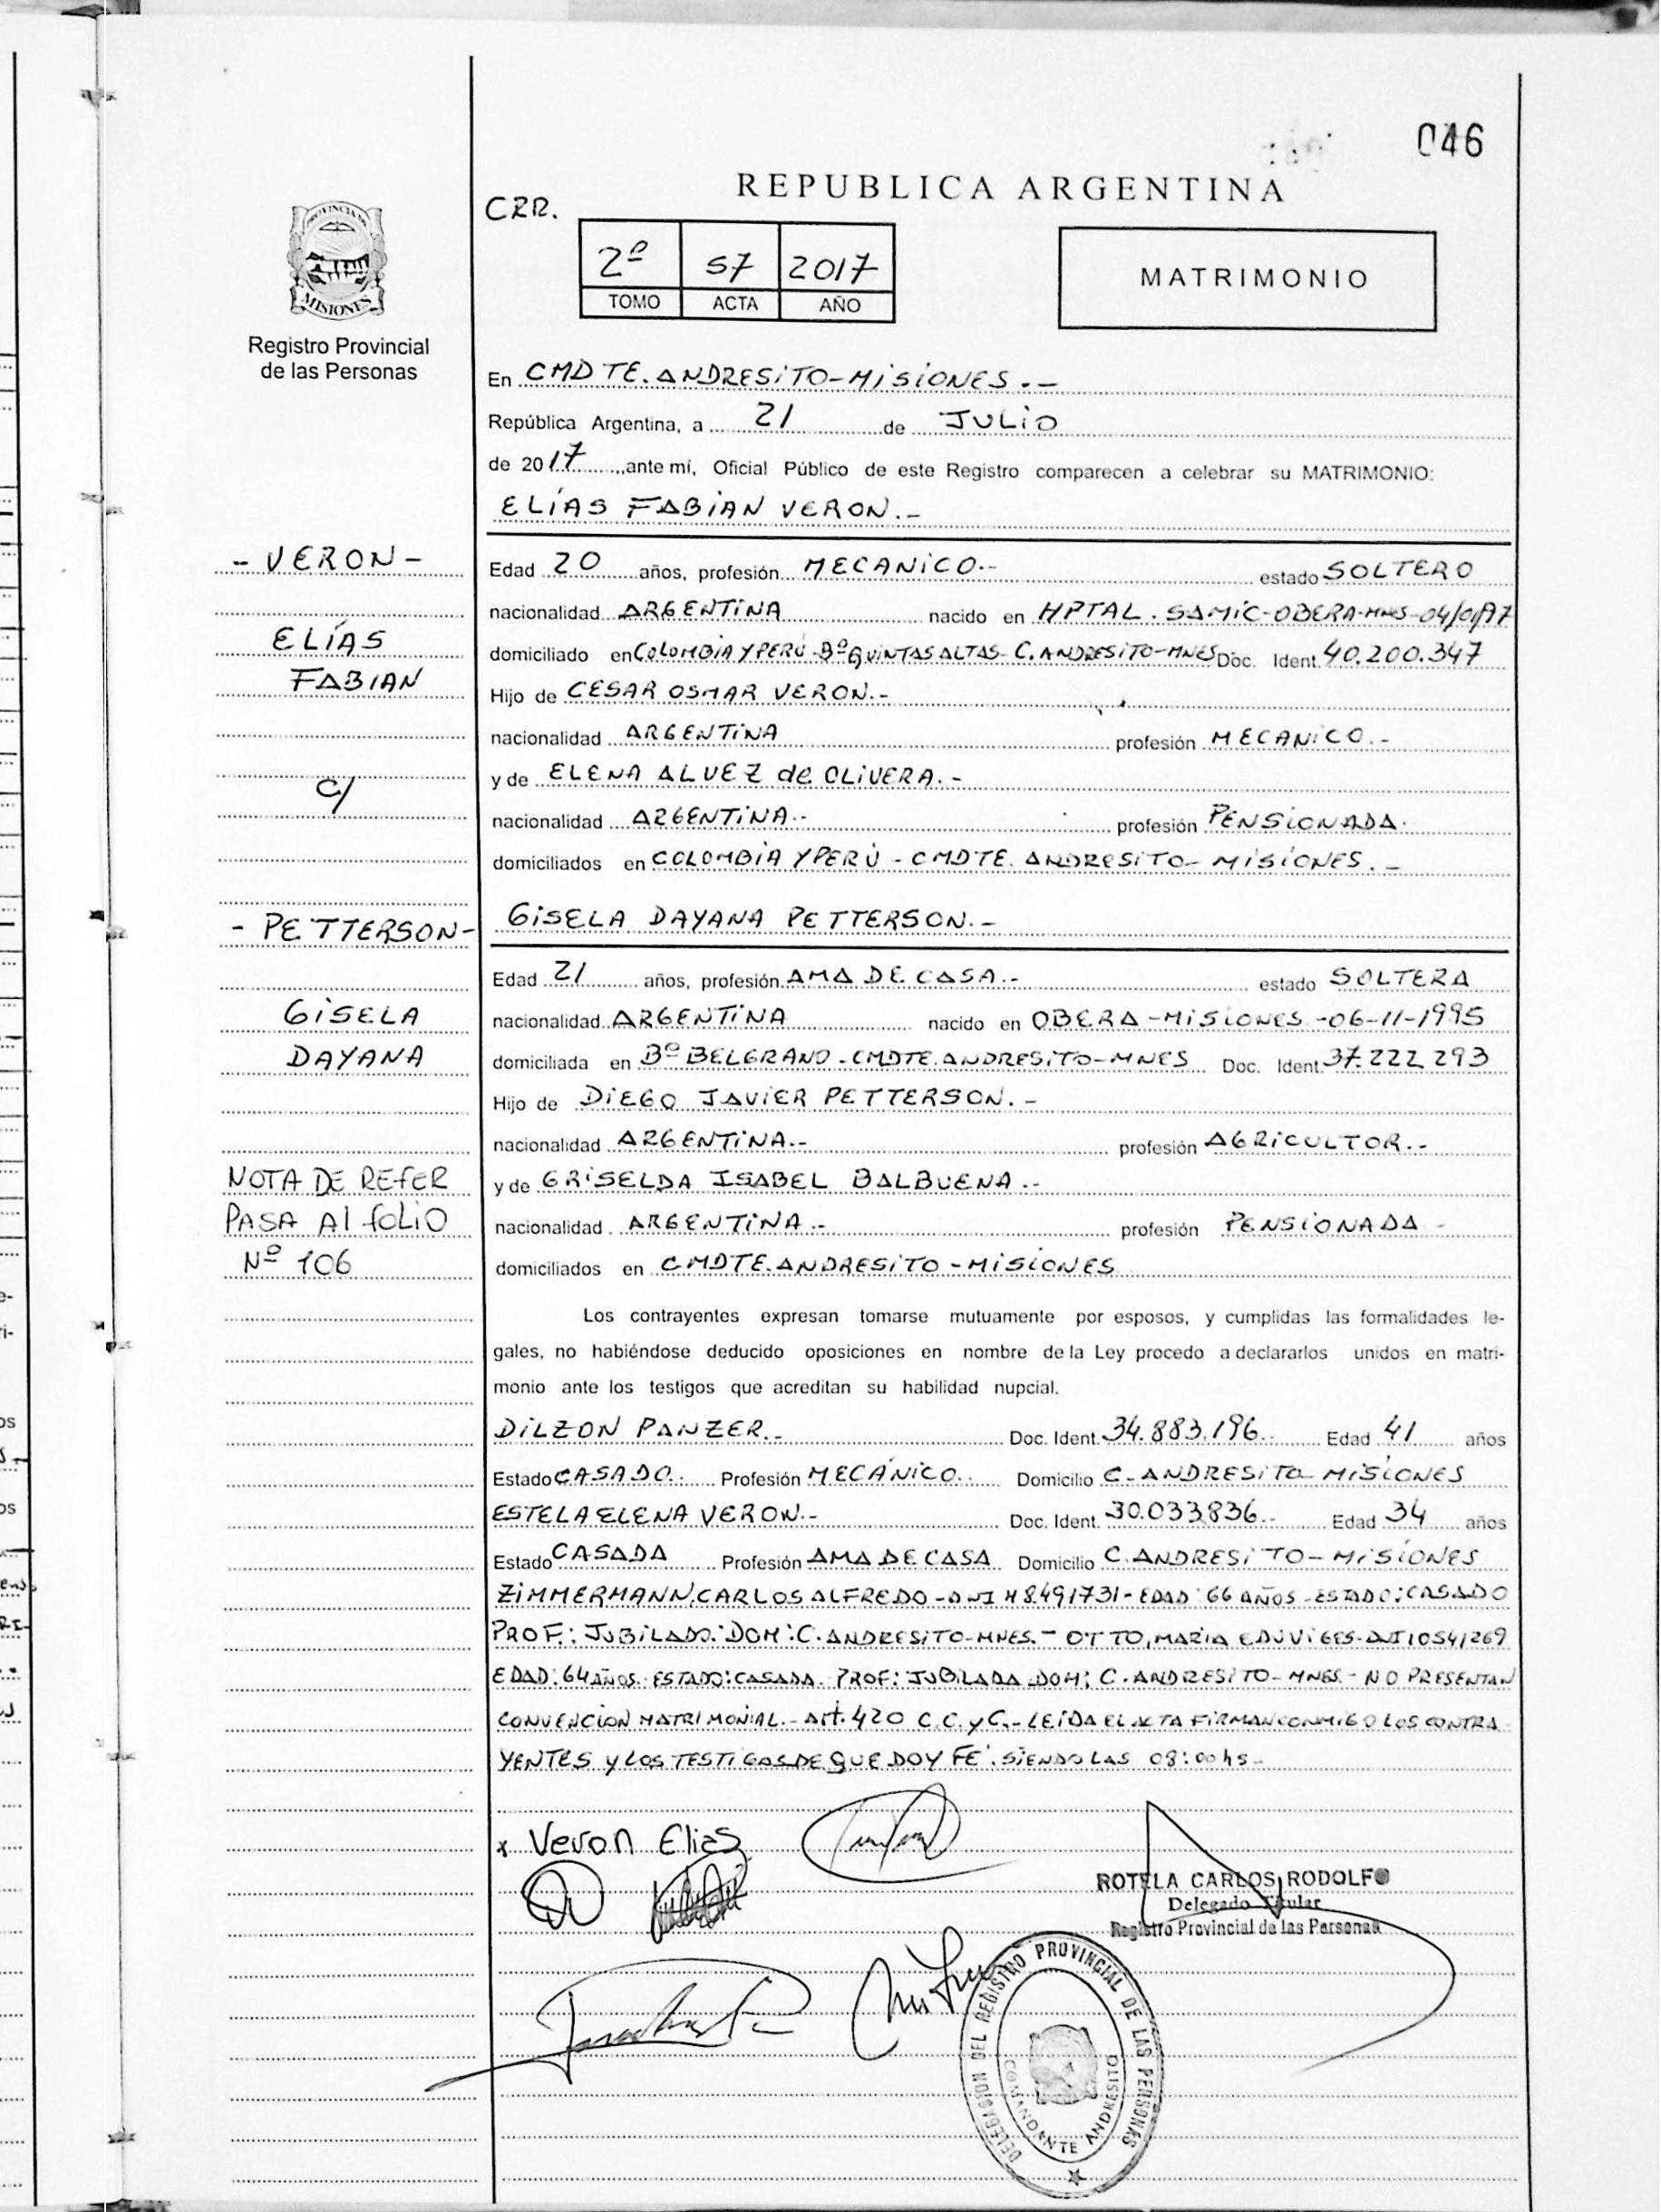 046
REPUBLICA ARGENTINA
CRR.
2º 57 2017
TOMO ACTA AÑO
MATRIMONIO
PROVINCIA DE
MISIONES
Registro Provincial
de las Personas
En CMDTE. ANDRESITO-MISIONES.-
República Argentina, a 21 de JULIO
de 2017 ante mí, Oficial Público de este Registro comparecen a celebrar su MATRIMONIO:
ELÍAS FABIAN VERON.-
- VERON -
ELÍAS
FABIAN
C/
- PETTERSON -
GISELA
DAYANA
NOTA DE REFER
PASA Al folio
Nº 106
Edad 20 años, profesión MECANICO.- estado SOLTERO
nacionalidad ARGENTINA nacido en HPTAL. SAMIC-OBERA-MNES-04/01/97
domiciliado en COLOMBIA Y PERÚ-Bº QUINTAS ALTAS-C. ANDRESITO-MNES Doc. Ident. 40.200.347
Hijo de CESAR OSMAR VERON.-
nacionalidad ARGENTINA profesión MECANICO.-
y de ELENA ALVEZ de OLIVERA.-
nacionalidad ARGENTINA.- profesión PENSIONADA.
domiciliados en COLOMBIA Y PERÚ - CMDTE. ANDRESITO-MISIONES.-
GISELA DAYANA PETTERSON.-
Edad 21 años, profesión AMA DE CASA.- estado SOLTERA
nacionalidad ARGENTINA nacido en OBERA-MISIONES-06-11-1995
domiciliada en Bº BELGRANO-CMDTE. ANDRESITO-MNES Doc. Ident. 37.222.293
Hijo de DIEGO JAVIER PETTERSON.-
nacionalidad ARGENTINA.- profesión AGRICULTOR.-
y de GRISELDA ISABEL BALBUENA.-
nacionalidad ARGENTINA.- profesión PENSIONADA-
domiciliados en CMDTE. ANDRESITO-MISIONES
Los contrayentes expresan tomarse mutuamente por esposos, y cumplidas las formalidades le-
gales, no habiéndose deducido oposiciones en nombre de la Ley procedo a declararlos unidos en matri-
monio ante los testigos que acreditan su habilidad nupcial.
DILZON PANZER.- Doc. Ident. 34.883.196. Edad 41 años
Estado CASADO. Profesión MECÁNICO. Domicilio C. ANDRESITO-MISIONES
ESTELA ELENA VERON.- Doc. Ident. 30.033.836.- Edad 34 años
Estado CASADA Profesión AMA DE CASA Domicilio C. ANDRESITO-MISIONES
ZIMMERMANN, CARLOS ALFREDO-DNI M8.491731-EDAD: 66 AÑOS-ESTADO: CASADO
PROF.: JUBILADO: DOM: C. ANDRESITO-MNES.- OTTO, MARIA EDUVIGES-DNI 10541269
EDAD: 64 AÑOS. ESTADO: CASADA. PROF: JUBILADA. DOM: C. ANDRESITO-MNES- NO PRESENTAN
CONVENCION MATRIMONIAL.- Art. 420 C.C. y C.- LEIDA EL ACTA FIRMAN CONMIGO LOS CONTRA
YENTES y LOS TESTIGOS DE QUE DOY FE. SIENDO LAS 08:00 hs-
x Veron Elias
ROTELA CARLOS RODOLFO
Delegado Titular
Registro Provincial de las Personas
DELEGACION DEL REGISTRO PROVINCIAL DE LAS PERSONAS
COMANDANTE ANDRESITO